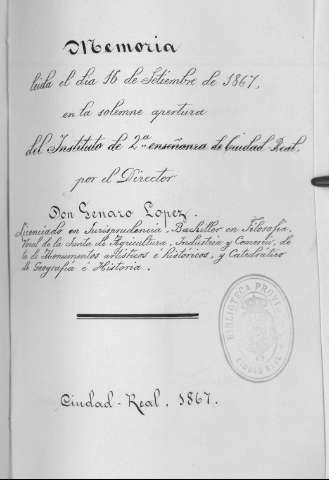 Memoria
leida el dia 16 de Setiembre de 1867,
en la solemne apertura
del Instituto de 2ª enseñanza de Ciudad-Real,
por el Director
Don Genaro Lopez,
Licenciado en Jurisprudencia, Bachiller en Filosofía,
Vocal de la Junta de Agricultura, Industria y Comercio, de
la de Monumentos artísticos é históricos, y Catedrático
de Geografía é Historia.
BIBLIOTECA PROV
CIUDAD REAL
Ciudad-Real. 1867.